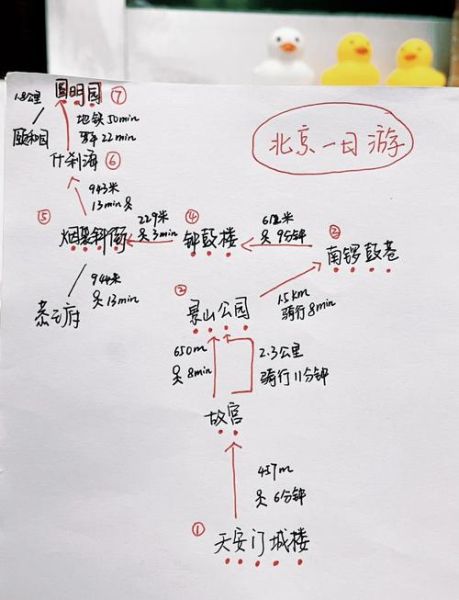 北京一日游
1.8公里
圆明园 ⑦
颐和园
地铁50min
骑车22min
什刹海 ⑥
943米
13min
⑤ 烟袋斜街
229米
3min
④ 钟鼓楼
612米
9分钟
③ 南锣鼓巷
944米
13min
恭王府
② 景山公园
1.5km
骑行8min
650m
8min
2.3公里
骑行11分钟
故宫
457m
6分钟
① 天安门城楼